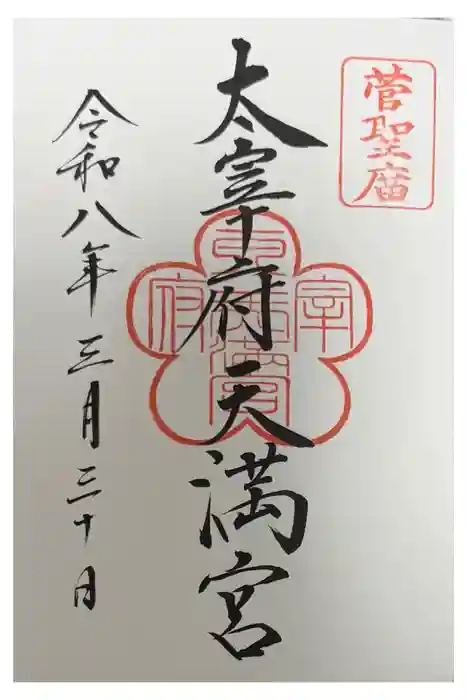 菅聖廟
太宰府天満宮
令和八年三月三十日